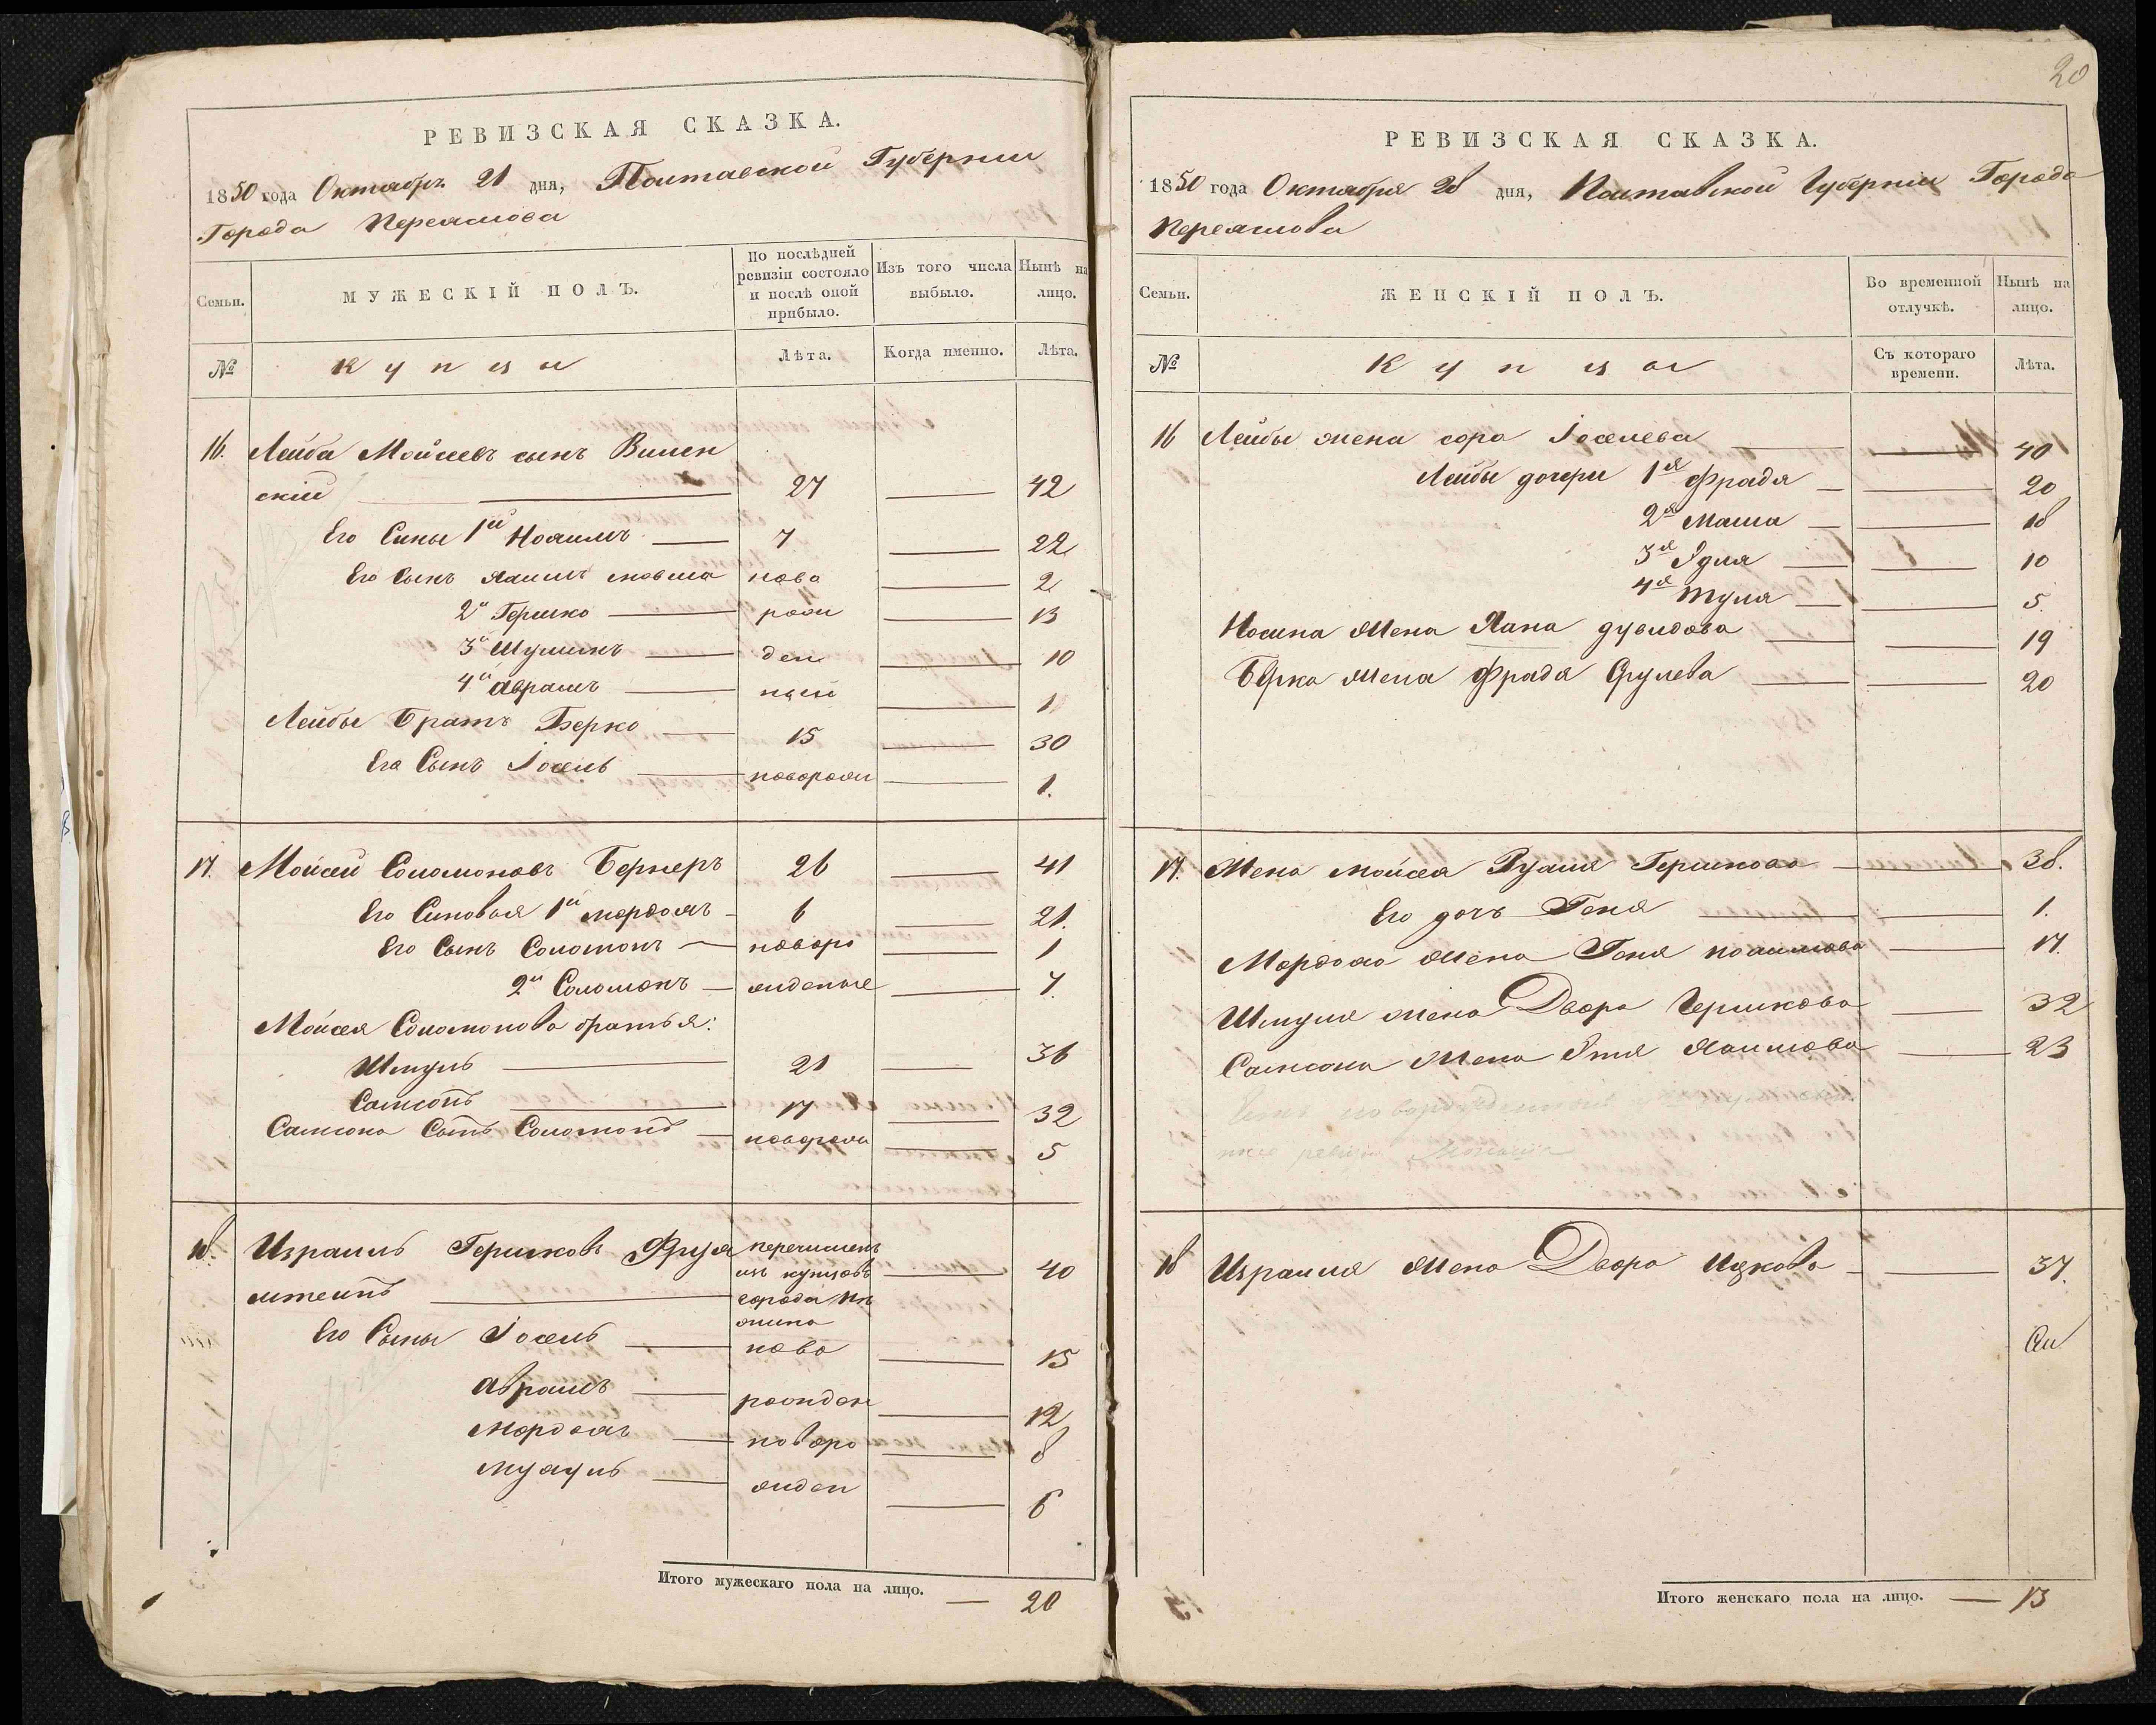 20
РЕВИЗСКАЯ СКАЗКА.
1850 года Октября 21 дня, Полтавской Губернии
Города Переяслова
Семьи.
МУЖЕСКІЙ ПОЛЪ.
По послѣдней ревизіи состояло и послѣ оной прибыло.
Изъ того числа выбыло.
Нынѣ на лицо.
№
Купцы
Лѣта.
Когда именно.
Лѣта.
16. Лейба Мойсеевъ сынъ Вилен
скій 27 42
Его Сины 1й 7 22
Его Сынъ ново 2
2й Гершко рож 13
3й Шулимъ ден 10
4й Абрамъ ный 1
Лейбы Братъ Берко 15 30
Его Сынъ Іосель новорож 1.
17. Мойсей Соломоновъ Бернеръ 26 41
Его Синовья 1й Мордохъ 6 21.
Его Сынъ Соломонъ новоро 1
2й Соломонъ жденые 7.
Мойсея Соломонова братья:
Шмуль 21 36
Самсонъ 17 32
Самсона Сынъ Соломонъ новорож 5
18. Израиль Гершковъ Фрум перечислен
изъ купцовъ 40
штейнъ города Нѣ
жина
Его Сыны Іосель ново 15
Абрамъ рожден 12
Мордохъ новоро 8
жден 6
Итого мужескаго пола на лицо. — 20
РЕВИЗСКАЯ СКАЗКА.
1850 года Октября 28 дня, Полтавской Губерніи Города
Переяслова
Семьи.
ЖЕНСКІЙ ПОЛЪ.
Во временной отлучкѣ.
Нынѣ на лицо.
№
Купцы
Съ котораго времени.
Лѣта.
16 Лейбы жена сора Іоселева 40
Лейбы дочери 1я Фрадя 20
2я Маша 18
3я Эдля 10
4я 5.
жена Хана дувидова 19
Берка жена Фрада Срулева 20
17. Жена мойсея Рухля Гершкова 38.
Его дочь Геня 1.
Мордохо жена Геня 17.
Шмуля жена Двора Гершкова 32
Самсона жена Этя Хаимова 23
18 Израиля жена Двора Ицкова 37.
Итого женскаго пола на лицо. — 13